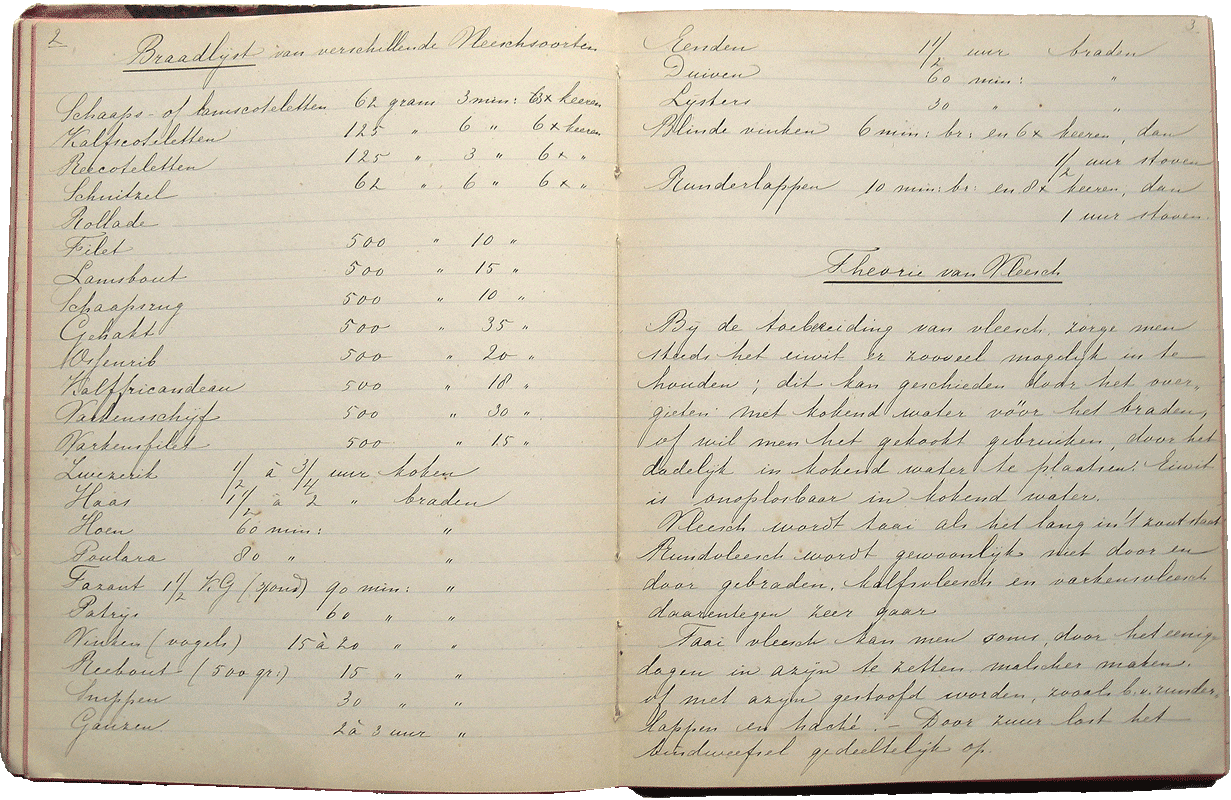 2
Braadlijst van verschillende Vleeschsoorten
Schaaps- of lamscoteletten 62 gram 3 min: 6x keeren
Kalfscoteletten 125 " 6 " 6x keeren
Reecoteletten 125 " 3 " 6x "
Schnitzel 62 " 6 " 6x "
Rollade
Filet 500 " 10 "
Lamsbout 500 " 15 "
Schaapsrug 500 " 10 "
Gehakt 500 " 35 "
Ossenrib 500 " 20 "
Kalffricandeau 500 " 18 "
Varkensschijf 500 " 30 "
Varkensfilet 500 " 15 "
Zwezerik 1/2 à 3/4 uur koken
Haas 1 1/2 à 2 " braden
Hoen 60 min: "
Poulara 80 " "
Fazant 1 1/2 KG (pond) 90 min: "
Patrijs 60 " "
Vinken (vogels) 15 à 20 " "
Reebout (500 gr:) 15 " "
Snippen 30 " "
Ganzen 2 à 3 uur "
3.
Eenden 1 1/2 uur braden
Duiven 60 min: "
Lijsters 30 " "
Blinde vinken 6 min: br: en 6x keeren, dan
1/2 uur stoven
Runderlappen 10 min: br: en 8x keeren, dan
1 uur stoven.
Theorie van Vleesch
Bij de toebereiding van vleesch, zorge men
steeds het eiwit er zooveel mogelijk in te
houden; dit kan geschieden door het over-
gieten met kokend water vóór het braden,
of wil men het gekookt gebruiken, door het
dadelijk in kokend water te plaatsen: Eiwit
is onoplosbaar in kokend water.
Vleesch wordt taai als het lang in 't zout staat
Rundvleesch wordt gewoonlijk niet door en
door gebraden, kalfsvleesch en varkensvleesch
daarentegen zeer gaar
Taai vleesch kan men soms door het eenige
dagen in azijn te zetten malscher maken.
of met azijn gestoofd worden, zooals b.v. runder-
lappen en haché. — Door zuur lost het
bindweefsel gedeeltelijk op.